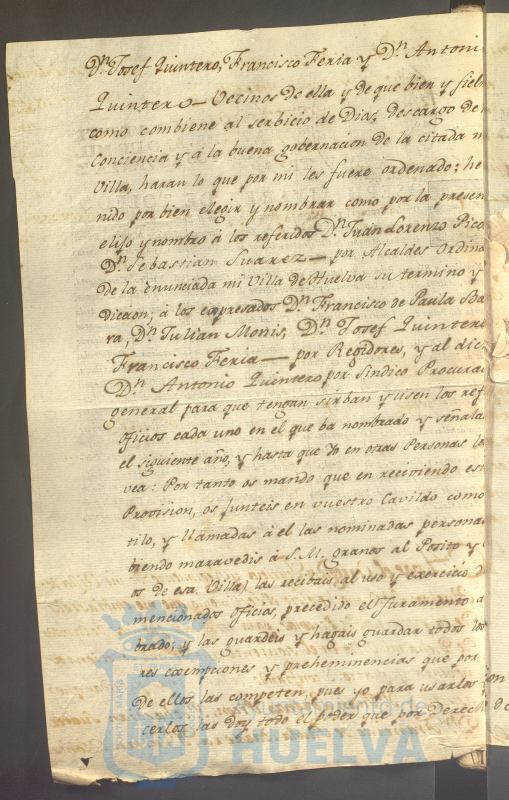 Dn. Josef Quintero, Francisco Feria y Dn. Antoni
Quintero — Vecinos de ella y de que bien y fielm
como combiene al serbicio de Dios, descargo de m
Conciencia y a la buena gobernacion de la citada m
Villa, haran lo que por mi les fuere ordenado; he
nido por bien elegir y nombrar como por la presen
elijo y nombro à los referidos Dn. Juan Lorenzo Pico
Dn. Sebastian Suarez — por Alcaldes Ordina
de la enunciada mi Villa de Huelva su termino y
diccion; à los expresados Dn. Francisco de Paula
ra, Dn. Julian Monis, Dn. Josef Quintero
Francisco Feria — por Regidores, y al dic
Dn. Antonio Quintero por Sindico Procurad
general para que tengan sirban y usen los ref
oficios cada uno en el que ba nombrado y señala
el siguiente año, y hasta que Yo en otras Personas lo
vea: Por tanto os mando que en reciviendo est
Provision, os junteis en vuestro Cavildo como
tilo, y llamadas à el las nominadas persona
biendo maravedis à S.M. granos al Posito y
os de esa Villa) las recibais al uso y exercicio d
mencionados oficios, precedido el Juramento a
brado; y las guardeis y hagais guardar todos los
res exempciones y preheminencias que por
de ellos las competen, pues yo para usarlos y
cerlos las doy todo el poder que por Derech
Ayuntamiento de
HUELVA